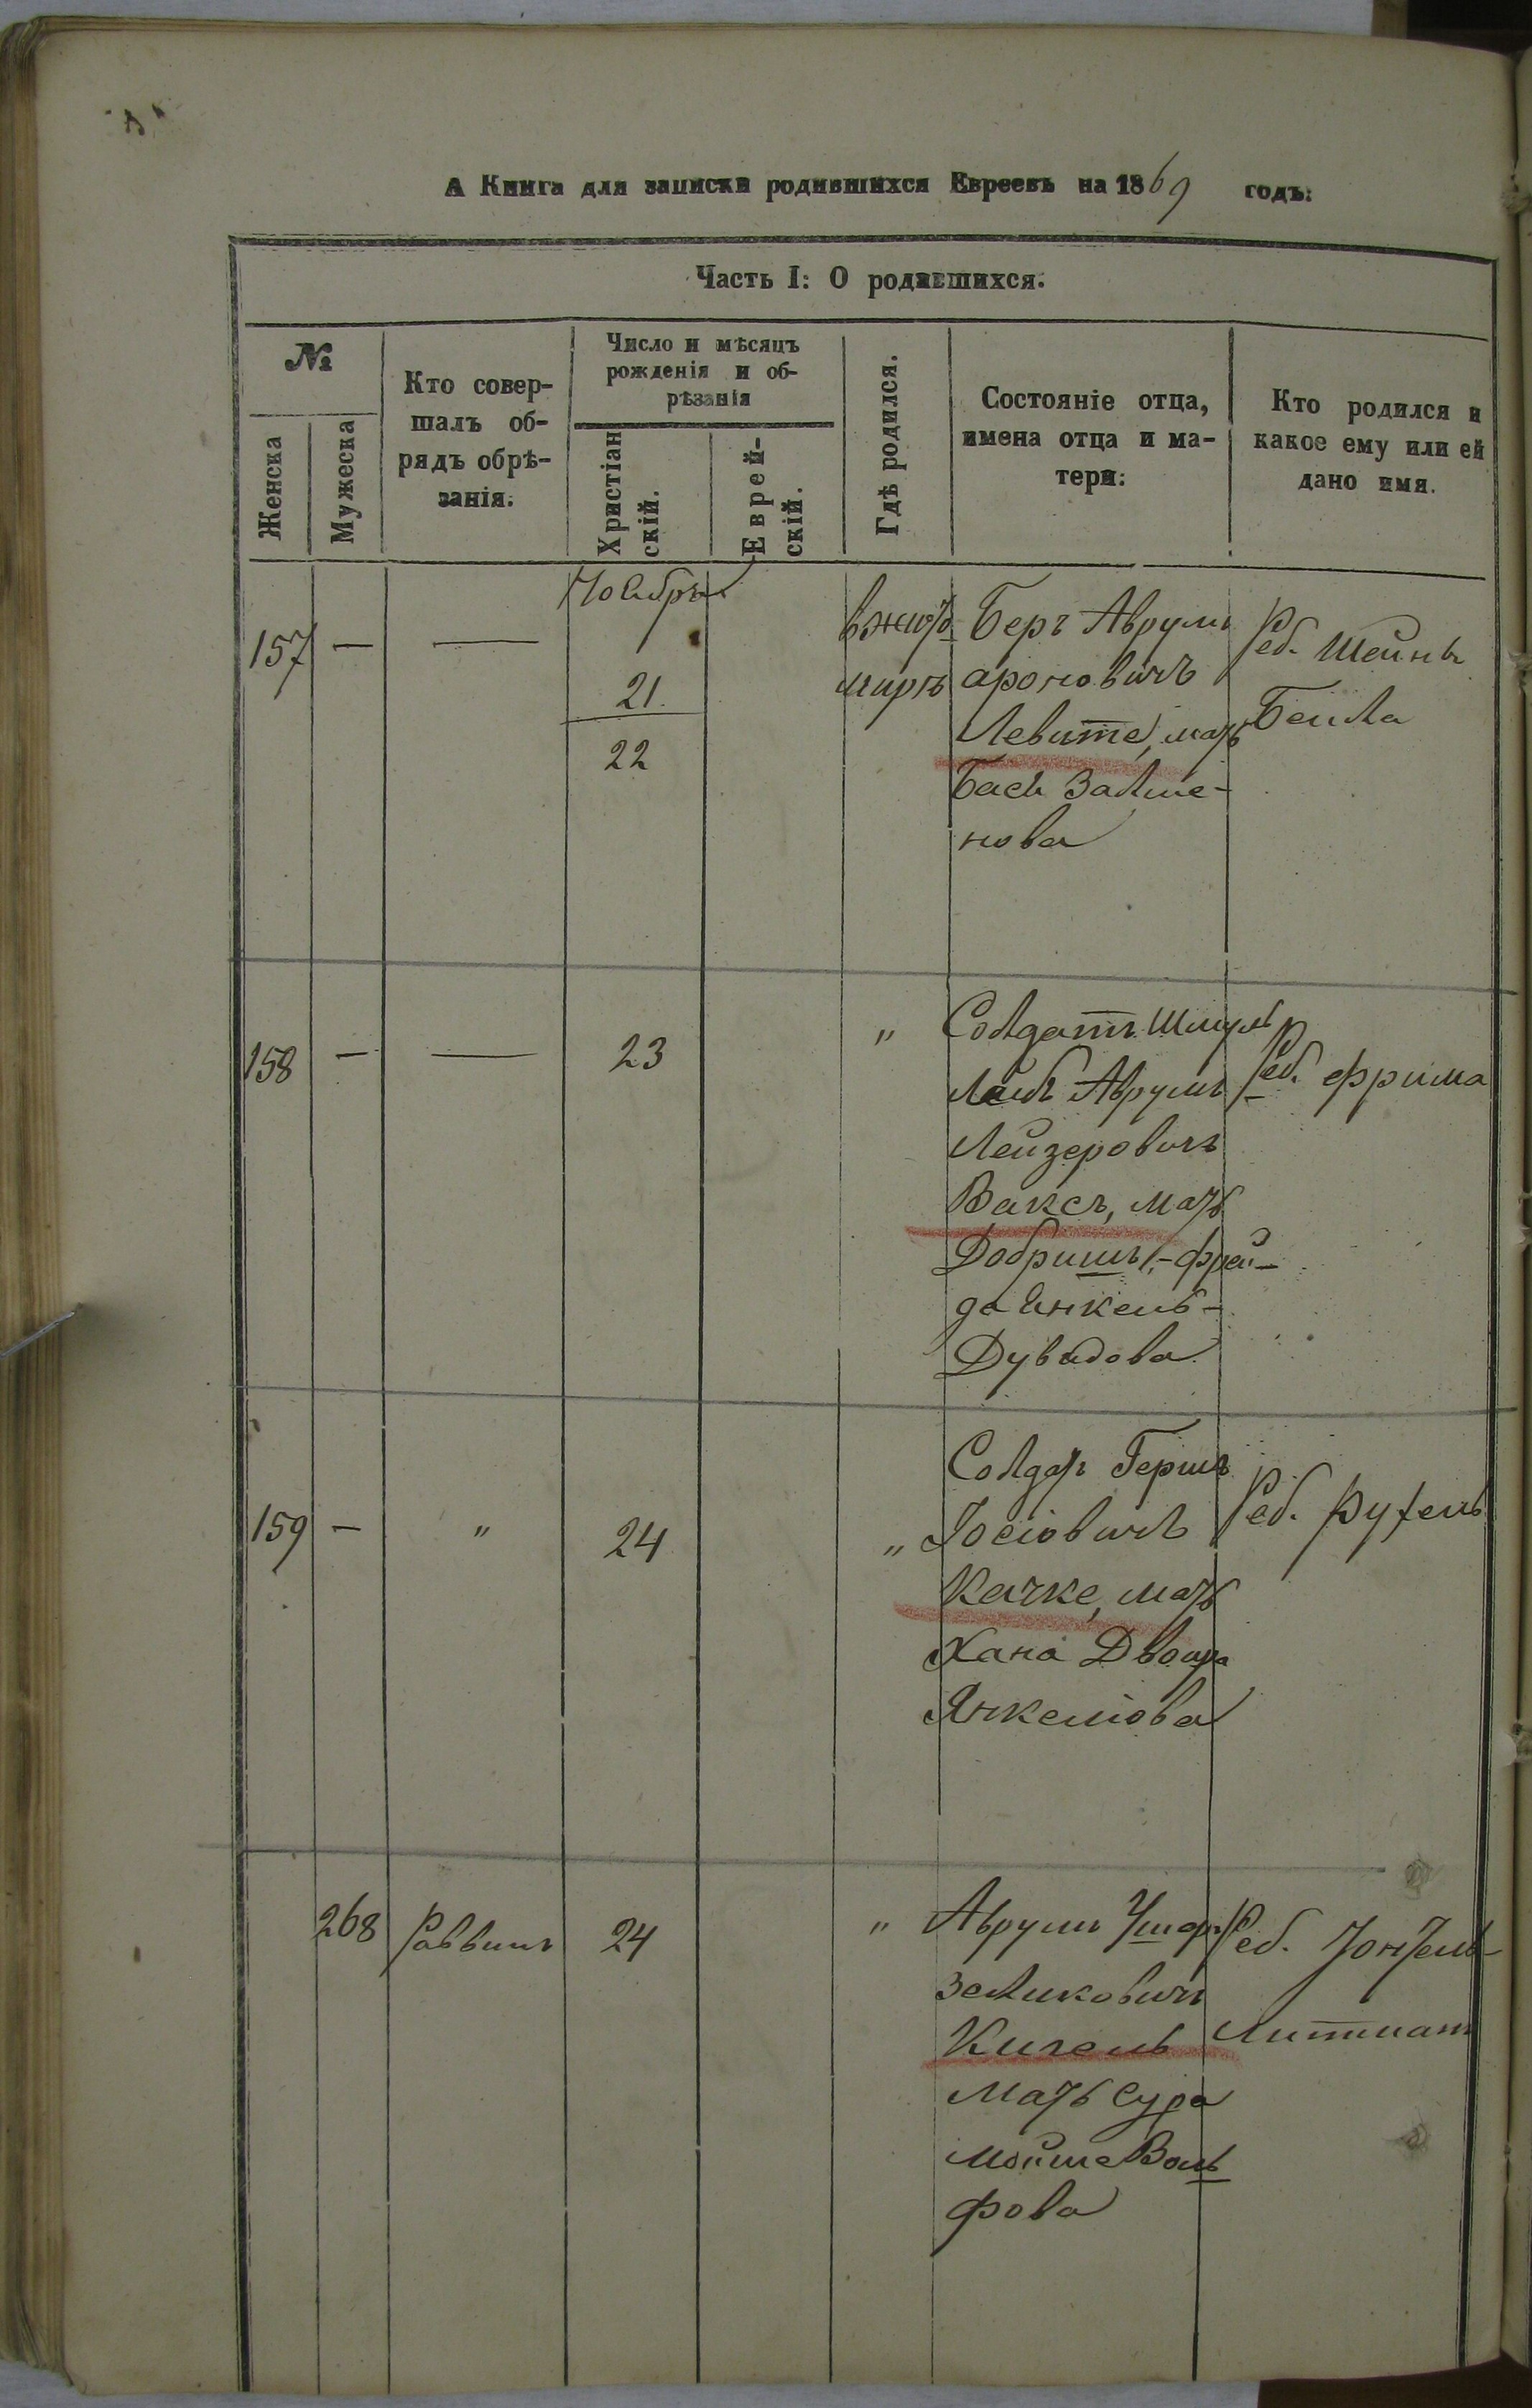 А Книга для записки родившихся Евреевъ на 1869 годъ:
Часть I: О родившихся.
№
Женска
Мужеска
Кто совер-
шалъ об-
рядъ обрѣ-
занія.
Число и мѣсяцъ
рожденія и об-
рѣзанія
Христіан
скій.
Еврей-
скій.
Гдѣ родился.
Состояніе отца,
имена отца и ма-
тери:
Кто родился и
какое ему или ей
дано имя.
Ноября
157 — —
21
22
вжито
мирѣ
Беръ Аврумъ
ароновичъ
Левите, мать
Бася Залме-
нова
Реб. Шейнъ
Бейла
158 — — 23 "
Солдатъ Шмуль
Лейбъ Аврумъ
Лейзеровичъ
Ваксъ, мать
Добришъ-Фрей-
да Янкель-
Дувидова
Реб. Фрима
159 — " 24 "
Солдатъ Гершъ
Іосіовичъ
Качке, мать
Хана Двойра
Янкеліова
Реб. Рухель
268 Раввинъ 24 "
Аврумъ Ушеръ
Зеликовичъ
Кигель
мать Сура
Мойше Воль
фова
Реб. Зонтель
Литманъ